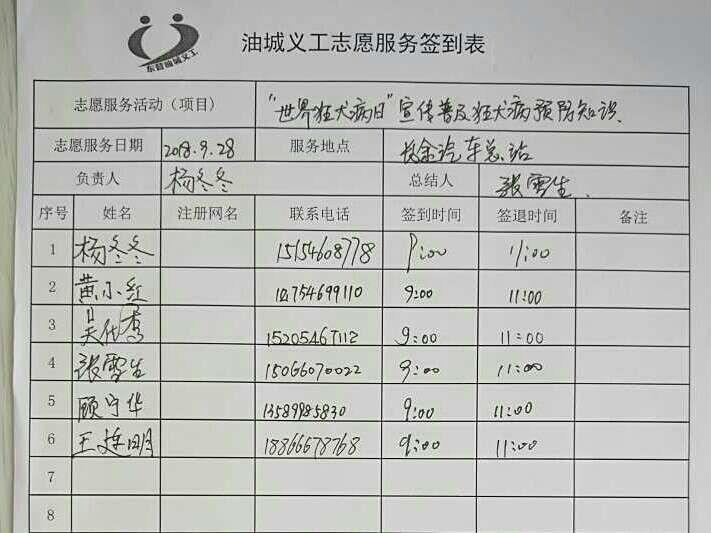 东营油城义工
油城义工志愿服务签到表
志愿服务活动（项目） “世界狂犬病日”宣传普及狂犬病预防知识.
志愿服务日期 2018.9.28 服务地点 长途汽车总站
负责人 杨冬冬 总结人 张雪生.
序号 姓名 注册网名 联系电话 签到时间 签退时间 备注
1 杨冬冬 15154608778 9:00 11:00
2 黄小红 9:00 11:00
3 15205467112 9:00 11:00
4 张雪生 15066070022 9:00 11:00
5 顾守华 13589985830 9:00 11:00
6 18866678768 9:00 11:00
7
8